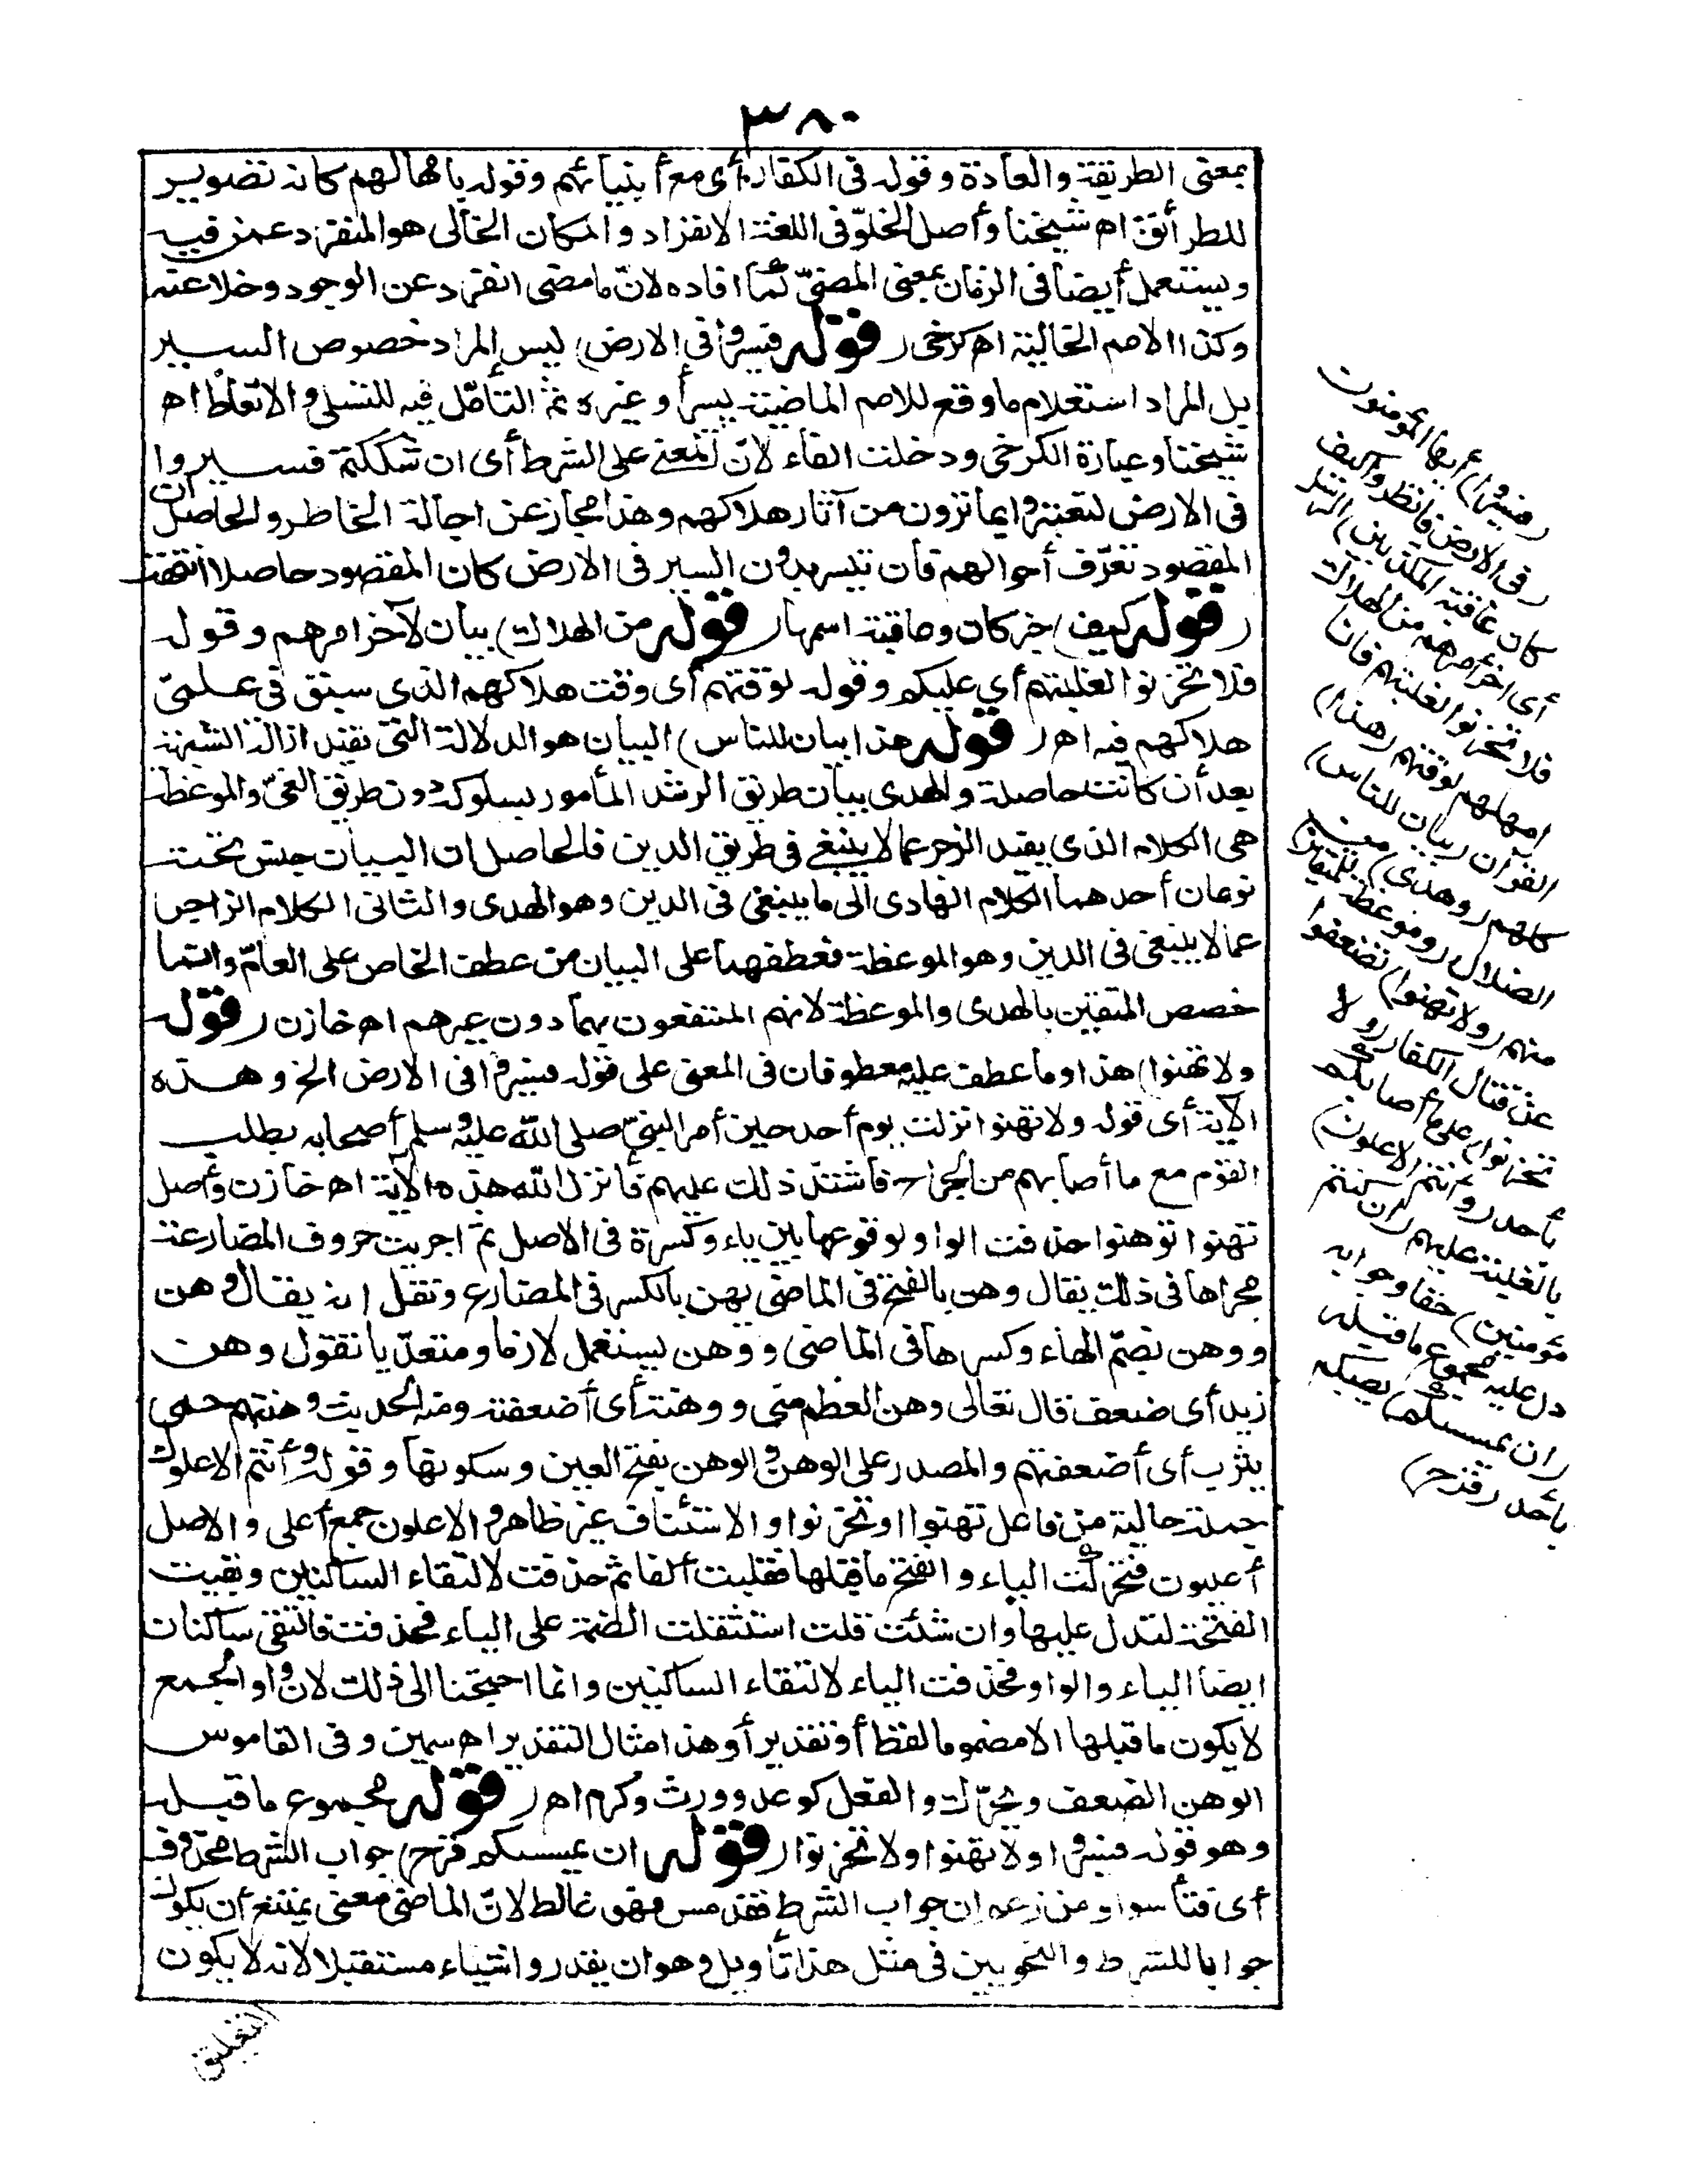 ٣٨٠
بمعنى الطريقة والعادة وقوله فى الكفار أى مع أنبيائهم وقوله بامهالهم كانه تصوير
للطرائق اه شيخنا وأصل الخلوّ فى اللغة الانفراد والمكان الخالى هو المنفرد عمن فيه
ويستعمل أيضا فى الزمان بمعنى المضىّ كما افاده لانّ ما مضى انفرد عن الوجود وخلا عنه
وكذا الامم الخالية اه كرخى (قوله فسيروا فى الارض) ليس المراد خصوص السير
بل المراد استعلام ما وقع للامم الماضية بسيرأ وغيره ثمّ التأمّل فيه للتسلى والاتعاظ اه
شيخنا وعبارة الكرخى ودخلت الفاء لانّ المعنى على الشرط أى ان شككتم فسيروا
فى الارض لتعتبروا بما ترون من آثار هلاكهم وهذا مجاز عن اجالة الخاطر والحاصل ان
المقصود تعرّف أحوالهم فان تيسر بدون السير فى الارض كان المقصود حاصلا انتهت
(قوله كيف) خبر كان وعاقبة اسمها (قوله من الهلاك) بيان لآخر امرهم وقوله
فلا تحزنوا لغلبتهم أي عليكم وقوله لوقتهم أى وقت هلاكهم الذى سبق فى علمىّ
هلاكهم فيه اه (قوله هذا بيان للناس) البيان هو الدلالة التى تفيد ازالة الشبهة
بعد أن كانت حاصلة والهدى بيان طريق الرشد المأمور بسلوكه دون طريق الغىّ والموعظة
هى الكلام الذى يفيد الزجر عما لا ينبغى فى طريق الدين فالحاصل ان البيان جنس تحته
نوعان أحدهما الكلام الهادى الى ما ينبغى فى الدين وهو الهدى والثانى الكلام الزاجر
عما لا ينبغى فى الدين وهو الموعظة فعطفهما على البيان من عطف الخاص على العامّ وانما
خصص المتقين بالهدى والموعظة لانهم المنتفعون بهما دون غيرهم اه خازن (قوله
ولا تهنوا) هذا وما عطف عليه معطوفان فى المعنى على قوله فسيروا فى الارض الخ وهذه
الآية أى قوله ولا تهنوا نزلت يوم أحد حين أمر النبىّ صلى الله عليه وسلم أصحابه بطلب
القوم مع ما أصابهم من الجراح فاشتدّ ذلك عليهم فأنزل الله هذه الآية اه خازن وأصل
تهنوا توهنوا حذفت الواو لوقوعها بين ياء وكسرة فى الاصل ثمّ اجريت حروف المضارعة
مجراها فى ذلك يقال وهن بالفتح فى الماضى يهن بالكسر فى المضارع ونقل انه يقال وهن
ووهن بضمّ الهاء وكسرها فى الماضى ووهن يستعمل لازما ومتعدّيا تقول وهن
زيد أى ضعف قال تعالى وهن العظم منى ووهنته أى أضعفته ومنه الحديث وهنتهم حمى
يثرب أى أضعفتهم والمصدر على الوهن والوهن بفتح العين وسكونها وقوله وأنتم الاعلون
جملة حالية من فاعل تهنوا او تحزنوا والاستئناف غير ظاهر والاعلون جمع أعلى والاصل
أعليون فتحرّكت الياء وانفتح ما قبلها فقلبت ألفا ثمّ حذفت لالتقاء الساكنين وبقيت
الفتحة لتدل عليها وان شئت قلت استثقلت الضمة على الياء فحذفت فالتقى ساكنان
ايضا الياء والواو فحذفت الياء لالتقاء الساكنين وانما احتجنا الى ذلك لان واو الجمع
لا يكون ما قبلها الا مضموما لفظا أو تقديرا وهذا مثال التقدير اه سمين وفى القاموس
الوهن الضعف ويحرّك والفعل كوعد وورث وكرم اه (قوله مجموع ما قبله
وهو قوله فسيروا ولا تهنوا ولا تحزنوا (قوله ان يمسسكم قرح) جواب الشرط محذوف
أى فتأسوا ومن زعم ان جواب الشرط فقد مس فهو غالط لانّ الماضى معنى يمتنع أن يكون
جوابا للشرط والنحويين فى مثل هذا تأويل وهو ان يقدروا شياء مستقبلا لانه لا يكون
(فسيروا) أيها المؤمنون
(فى الارض فانظروا كيف
كان عاقبة المكذبين) الرسل
أى اخر أمرهم من الهلاك
فلا تحزنوا لغلبتهم فانا
امهلهم لوقتهم (هذا)
القرآن (بيان للناس)
كلهم (وهدى) من
الضلال (وموعظة للمتقين)
منهم (ولا تهنوا) تضعفوا
عن قتال الكفار (ولا
تحزنوا) على ما أصابكم
بأحد (وأنتم الاعلون)
بالغلبة عليهم (ان كنتم
مؤمنين) حقا وجوابه
دل عليه مجموع ما قبله
(ان يمسسكم) يصبكم
بأحد (قرح)
التعليق